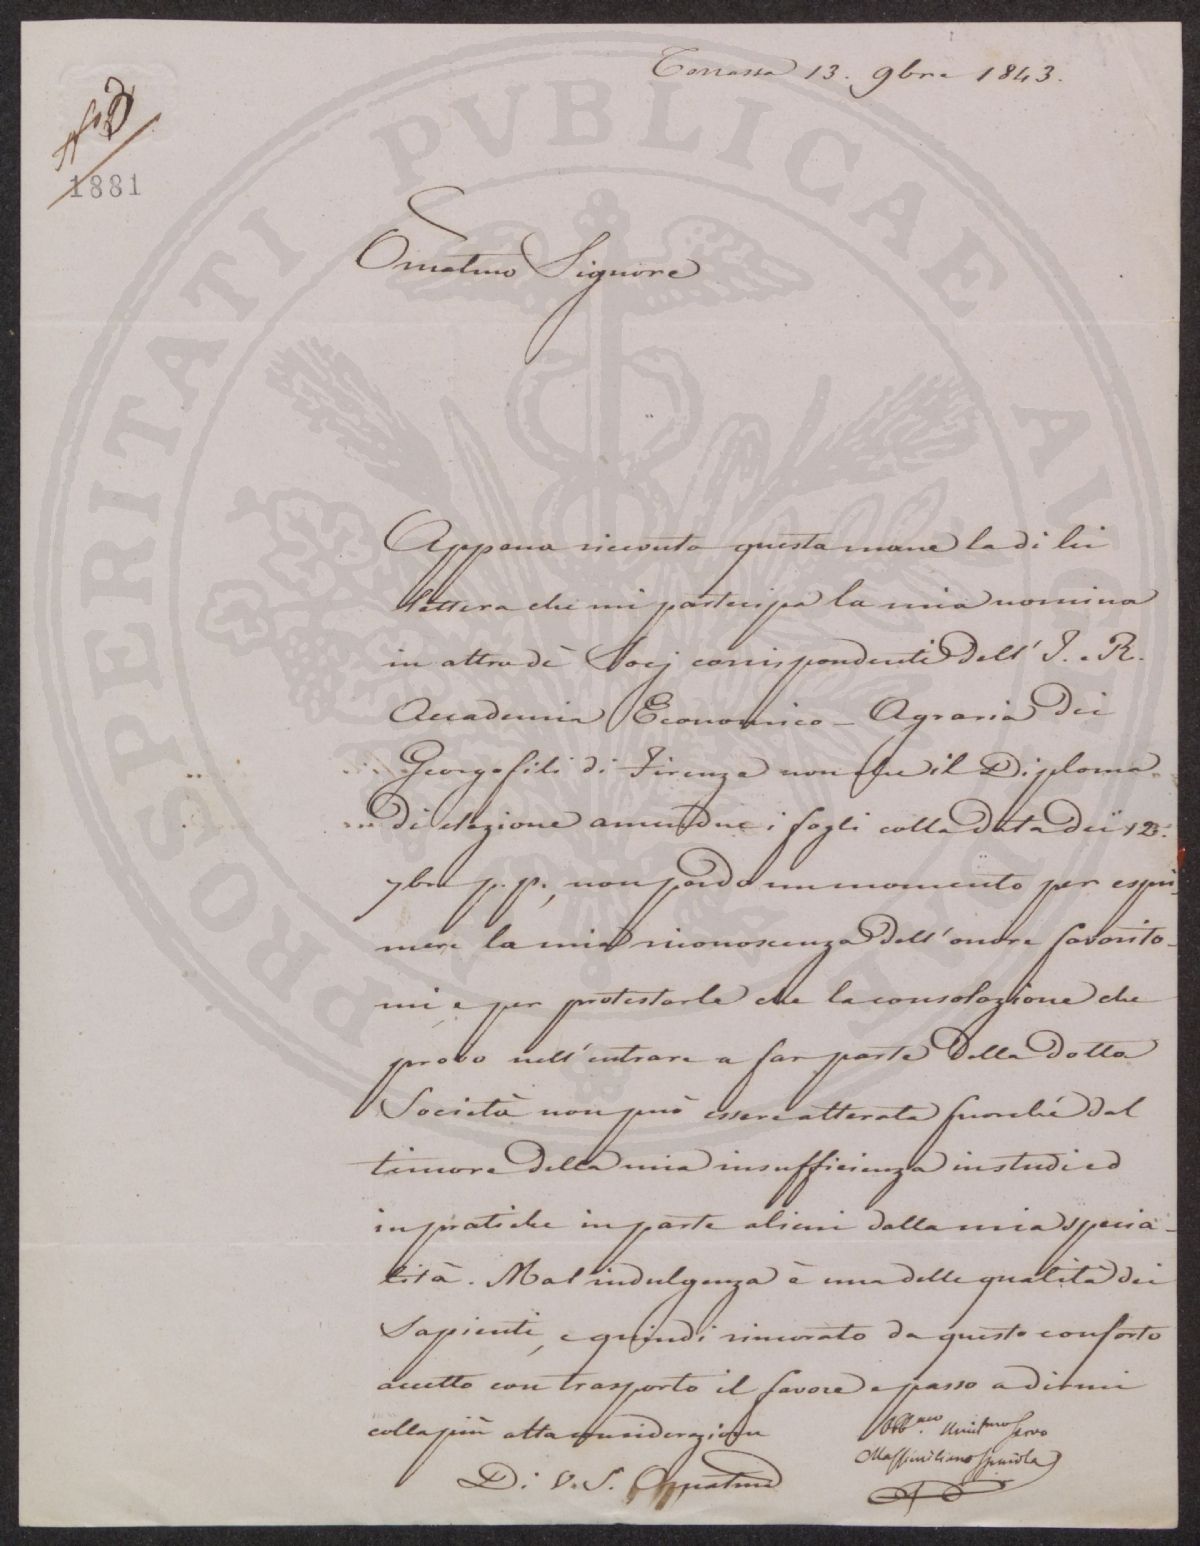 Tassarolo 13. 9bre 1843.
1881
PROSPERITATI PVBLICAE AVGENDAE
Ornatmo Signore
Appena ricevuta questa mane la di lei
lettera che mi partecipa la mia nomina
in altro dè Socj corrispondenti dell' I. e R.
Accademia Economico-Agraria dei
Georgofili di Firenze non che il Diploma
di elezione amendue i fogli colla data dei 12.
7bre p. p., non perdo un momento per espri-
mere la mia riconoscenza dell'onore favorito-
mi, e per protestarle che la consolazione che
provo nell'entrare a far parte della dotta
Società non può essere alterata fuorché dal
timore della mia insufficienza in studi ed
in pratiche in parte alieni dalla mia specia-
lità. Ma l'indulgenza è una delle qualità dei
Sapienti, e quindi rincorato da questo conforto
accetto con trasporto il favore e passo a dirmi
colla più alta considerazione
Di V. S. Ornatma
Obb.mo Servo
Massimiliano Spinola